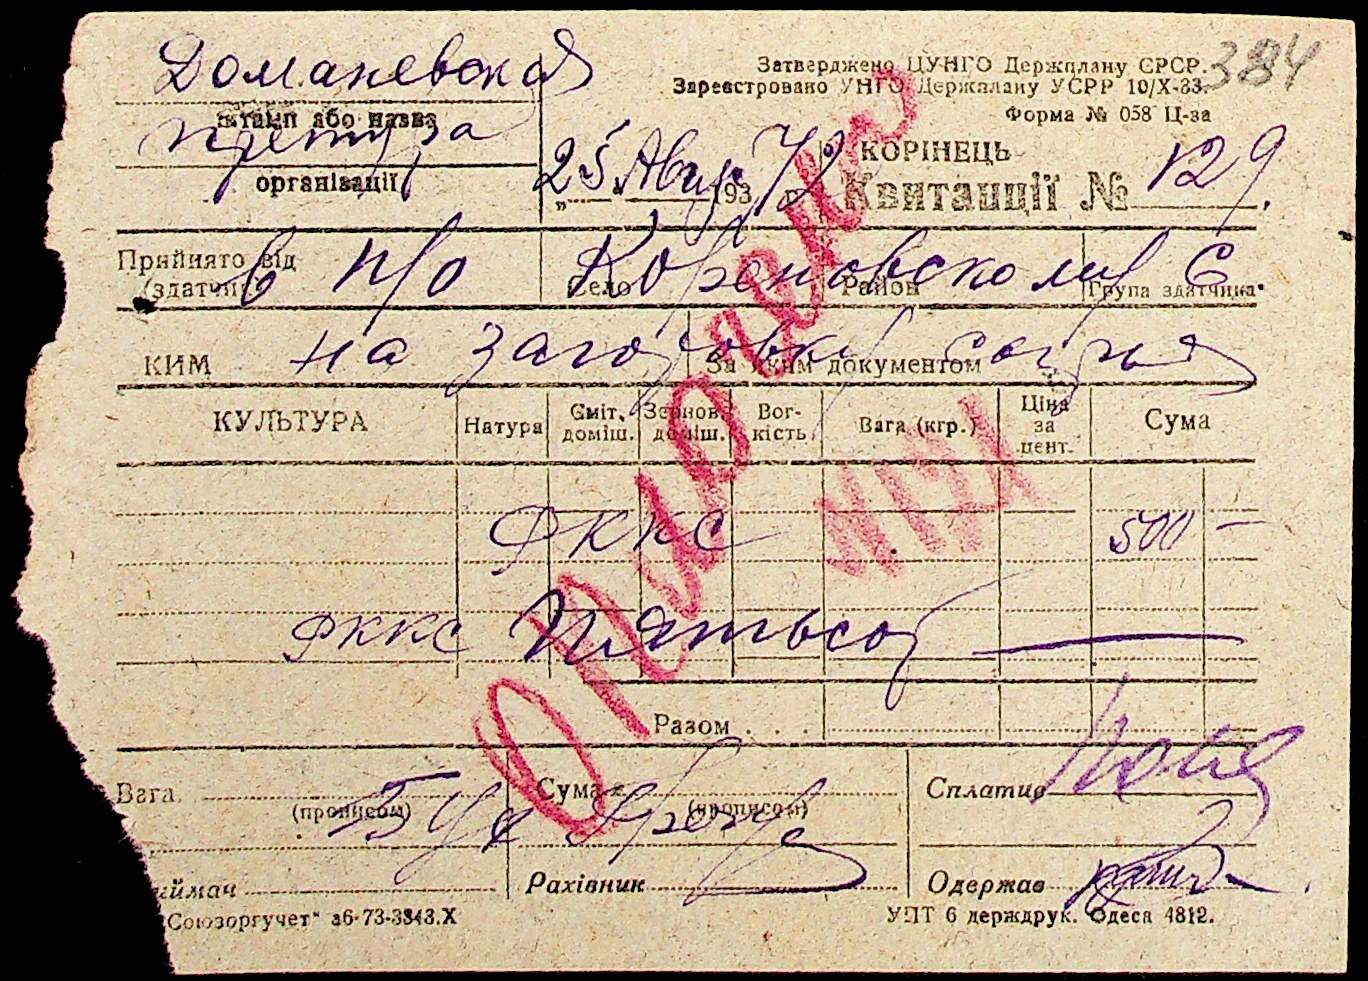 Доманевская
Затверджено ЦУНГО Держплану СРСР.
384
штамп або назва
Зареєстровано УНГО Держплану УСРР 10/X-33.
Форма № 058 Ц-за
претура
організації
„25" Авг 193 42 р.
КОРІНЕЦЬ
Квитанції № 129.
Прийнято від
(здатчик)
в п/о
Село
Кореновскому С
Район
Група здатчика
КИМ
на заготовку
За яким документом
КУЛЬТУРА Натура Сміт. доміш. Зернов. доміш. Вог-кість Вага (кгр.) Ціна за цент. Сума
ФККС 500 —
ФККС Пятьсот —
Оплочено
Разом . . .
Вага
(прописом)
Сума
(прописом)
Сплатив
иймач
Рахівник
Одержав
Союзоргучет" а6-73-3343.X
УПТ 6 держдрук. Одеса 4812.